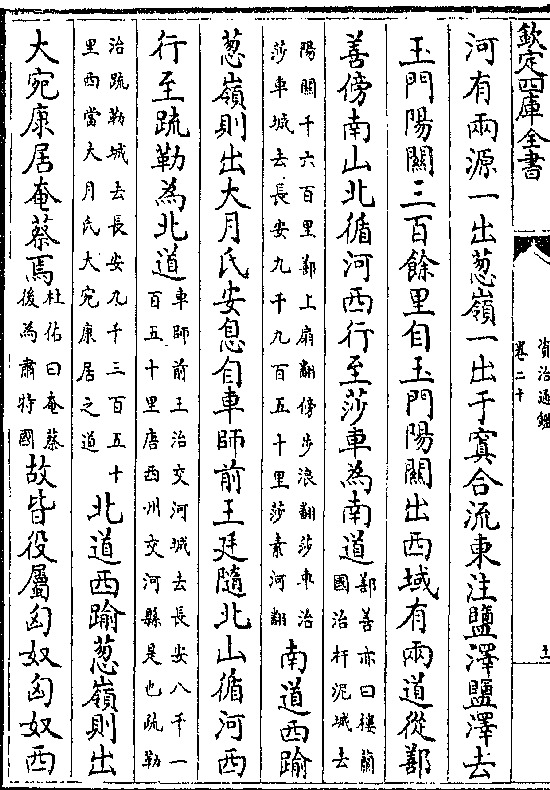 欽定四庫全書
資治通鑑
卷二十
河有兩源一出葱嶺一出于窴合流東注鹽澤鹽澤去
玉門陽關三百餘里自玉門陽關出西域有兩道從鄯
善傍南山北循河西行至莎車為南道鄯善亦曰樓蘭
國治扞泥城去
陽關千六百里鄯上扇翻傍步浪翻莎車治
莎車城去長安九千九百五十里莎素河翻南道西踰
葱嶺則出大月氏安息自車師前王廷隨北山循河西
行至疏勒為北道車師前王治交河城去長安八千一
百五十里唐西州交河縣是也疏勒
治疏勒城去長安九千三百五十
里西當大月氏大宛康居之道北道西踰葱嶺則出
大宛康居奄蔡焉杜佑曰奄蔡
後為肅特國故皆役屬匈奴匈奴西